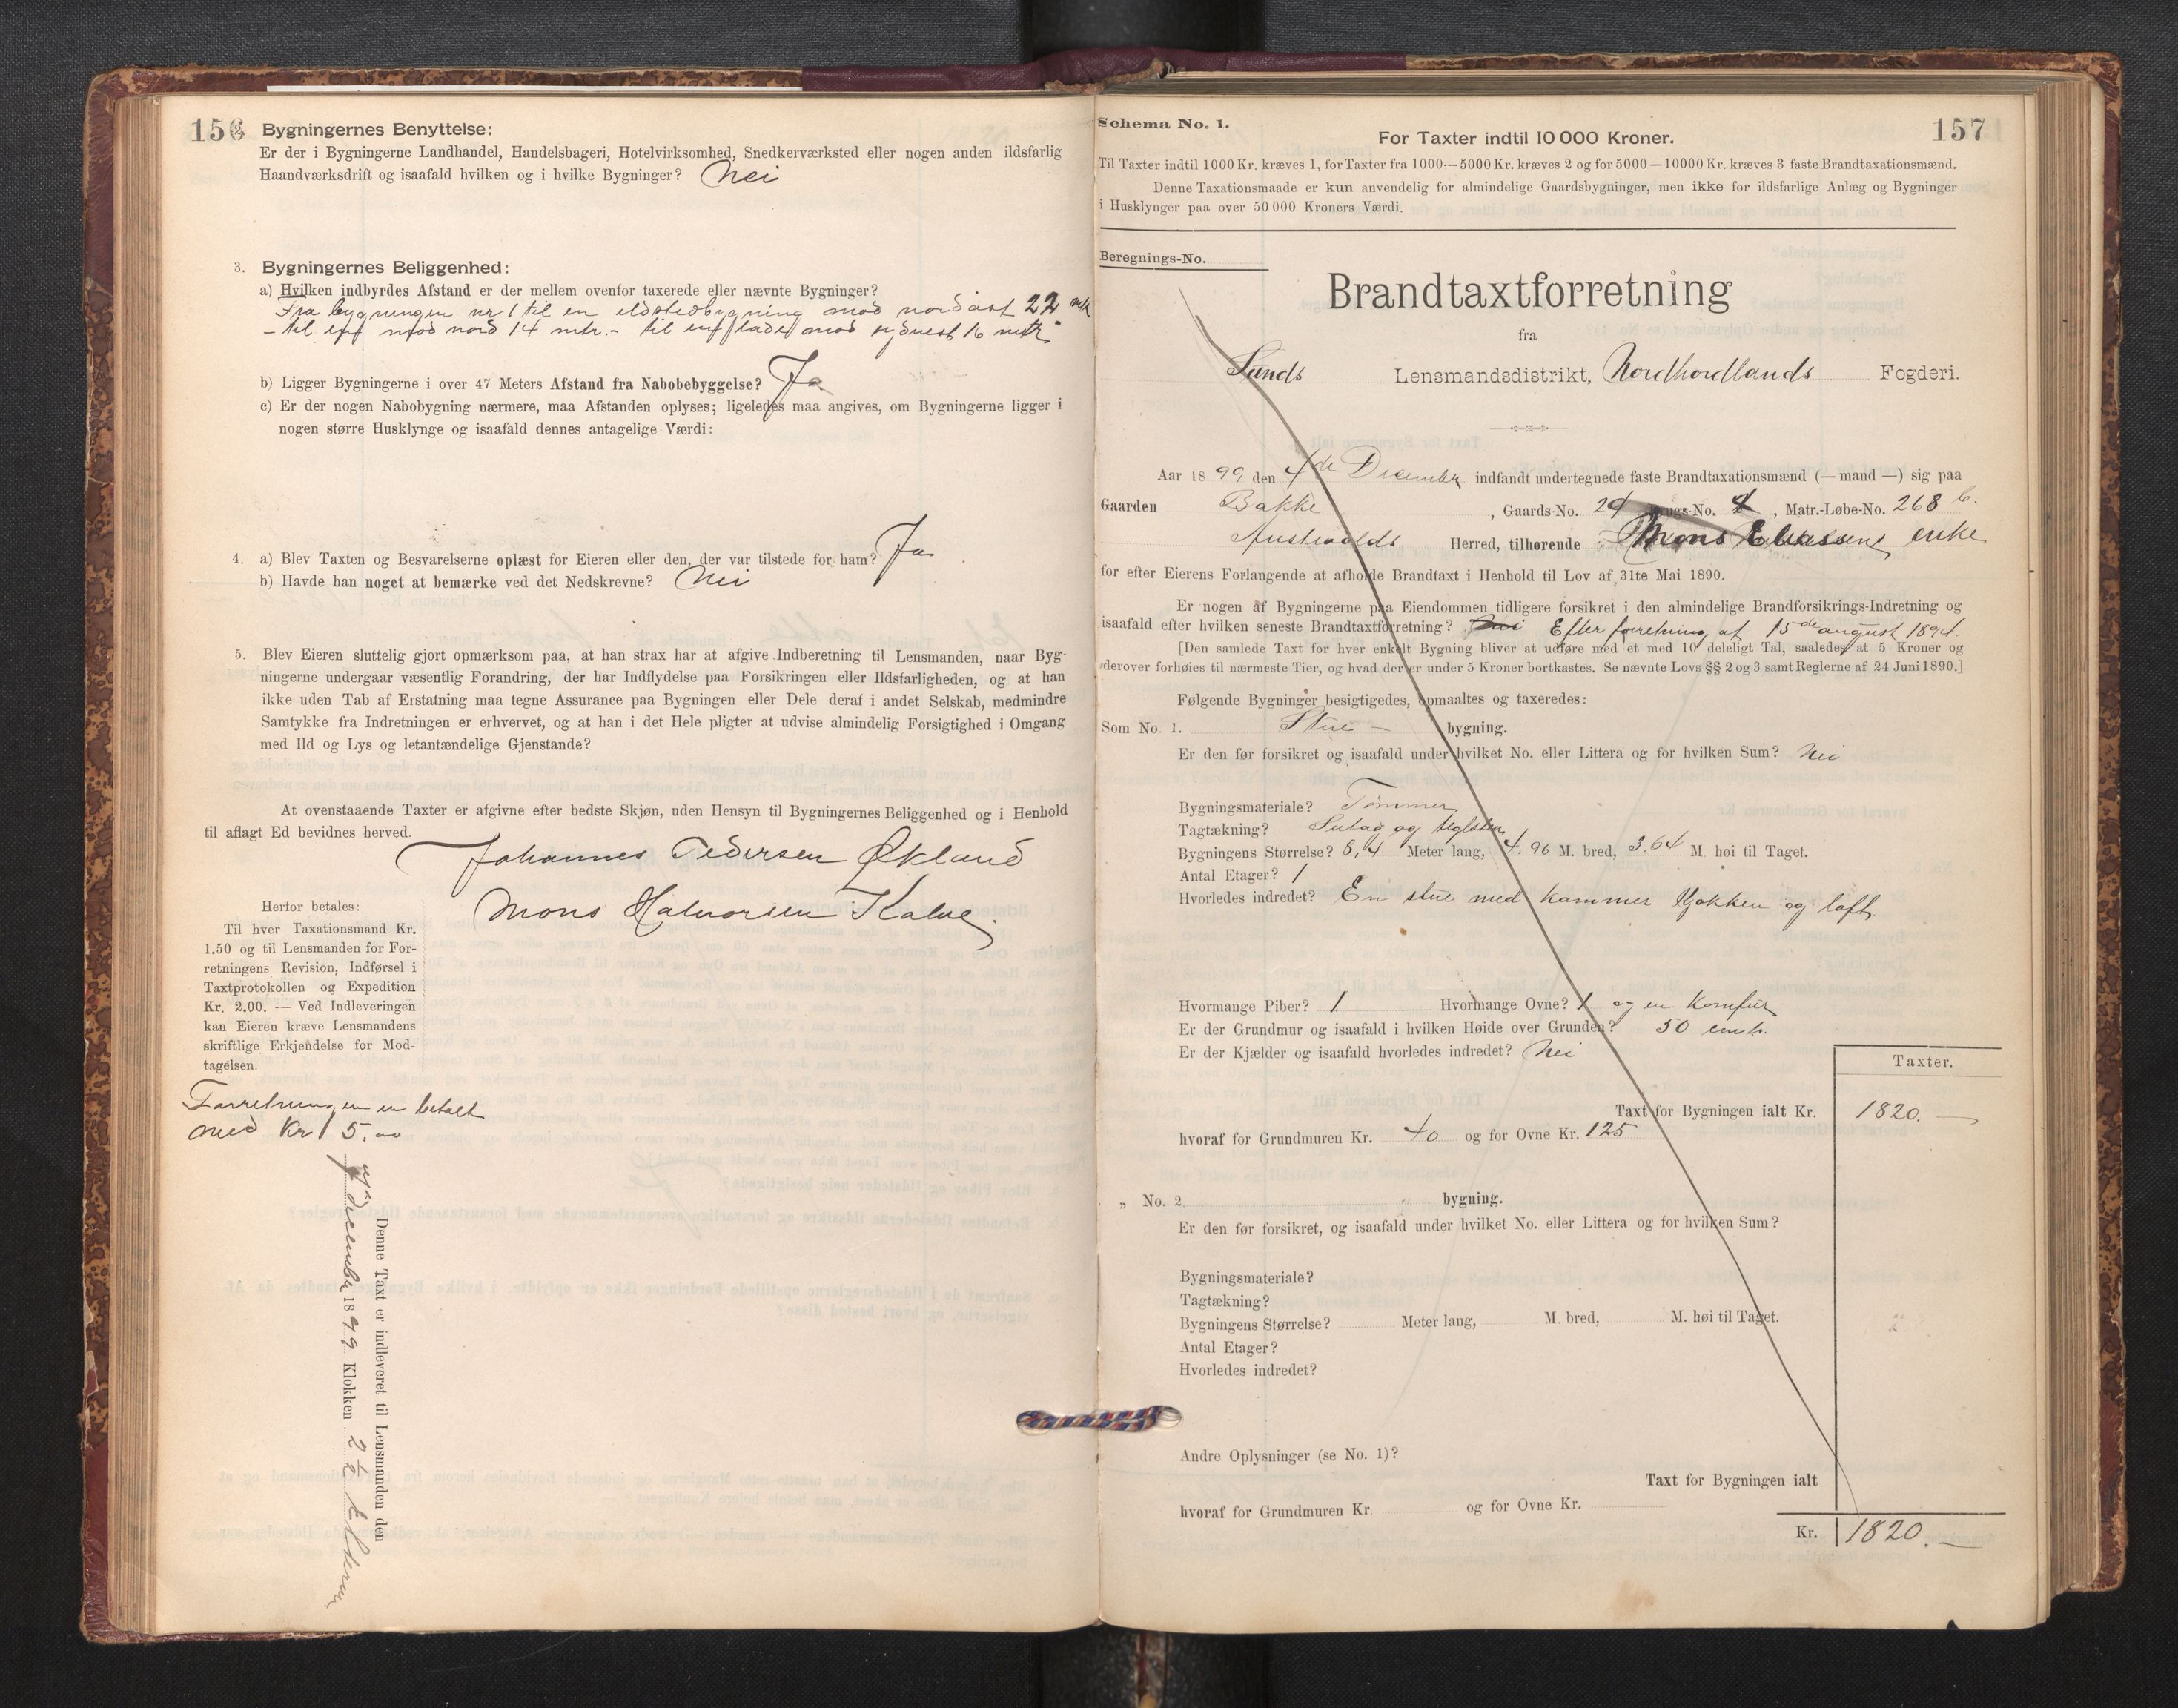 156
Bygningernes Benyttelse:
Er der i Bygningerne Landhandel, Handelsbageri, Hotelvirksomhed, Snedkerværksted eller nogen anden ildsfarlig
Haandværksdrift og isaafald hvilken og i hvilke Bygninger? Nei
3. Bygningernes Beliggenhed:
a) Hvilken indbyrdes Afstand er der mellem ovenfor taxerede eller nævnte Bygninger?
Fra bygningen nr 1 til en ildstedbygning mod nordöst 22 mtr
- til en mod nord 14 mtr. - til en lade mod sydvest 16 mtr
b) Ligger Bygningerne i over 47 Meters Afstand fra Nabobebyggelse? Ja
c) Er der nogen Nabobygning nærmere, maa Afstanden oplyses; ligeledes maa angives, om Bygningerne ligger i
nogen større Husklynge og isaafald dennes antagelige Værdi:
4. a) Blev Taxten og Besvarelserne oplæst for Eieren eller den, der var tilstede for ham? Ja
b) Havde han noget at bemærke ved det Nedskrevne? Nei
5. Blev Eieren sluttelig gjort opmærksom paa, at han strax har at afgive Indberetning til Lensmanden, naar Byg-
ningerne undergaar væsentlig Forandring, der har Indflydelse paa Forsikringen eller Ildsfarligheden, og at han
ikke uden Tab af Erstatning maa tegne Assurance paa Bygningen eller Dele deraf i andet Selskab, medmindre
Samtykke fra Indretningen er erhvervet, og at han i det Hele pligter at udvise almindelig Forsigtighed i Omgang
med Ild og Lys og letantændelige Gjenstande?
At ovenstaaende Taxter er afgivne efter bedste Skjøn, uden Hensyn til Bygningernes Beliggenhed og i Henhold
til aflagt Ed bevidnes herved.
Johannes Pedersen Økland
Mons Halvorsen Kalve
Herfor betales:
Til hver Taxationsmand Kr.
1.50 og til Lensmanden for For-
retningens Revision, Indførsel i
Taxtprotokollen og Expedition
Kr. 2.00. — Ved Indleveringen
kan Eieren kræve Lensmandens
skriftlige Erkjendelse for Mod-
tagelsen.
Forretningen er betalt
med Kr 5.00
Denne Taxt er indleveret til Lensmanden den
December 1899 Klokken 2½
157
Schema No. 1.
For Taxter indtil 10 000 Kroner.
Til Taxter indtil 1000 Kr. kræves 1, for Taxter fra 1000—5000 Kr. kræves 2 og for 5000—10000 Kr. kræves 3 faste Brandtaxationsmænd.
Denne Taxationsmaade er kun anvendelig for almindelige Gaardsbygninger, men ikke for ildsfarlige Anlæg og Bygninger
i Husklynger paa over 50 000 Kroners Værdi.
Beregnings-No.
Brandtaxtforretning
fra
Sunds Lensmandsdistrikt, Nordhordlands Fogderi.
Aar 1899 den 4de December indfandt undertegnede faste Brandtaxationsmænd (— mand —) sig paa
Gaarden Bakke, Gaards-No. 24 Brugs-No. 4, Matr.-Løbe-No. 268 b.
Austevolds Herred, tilhørende Mons Eliassens enke
for efter Eierens Forlangende at afholde Brandtaxt i Henhold til Lov af 31te Mai 1890.
Er nogen af Bygningerne paa Eiendommen tidligere forsikret i den almindelige Brandforsikrings-Indretning og
isaafald efter hvilken seneste Brandtaxtforretning? Nei Efter forretning af 15de august 1894.
[Den samlede Taxt for hver enkelt Bygning bliver at udføre med et med 10 deleligt Tal, saaledes at 5 Kroner og
derover forhøies til nærmeste Tier, og hvad der er under 5 Kroner bortkastes. Se nævnte Lovs §§ 2 og 3 samt Reglerne af 24 Juni 1890.]
Følgende Bygninger besigtigedes, opmaaltes og taxeredes:
Som No. 1. Stue - bygning.
Er den før forsikret og isaafald under hvilket No. eller Littera og for hvilken Sum? Nei
Bygningsmateriale? Tømmer
Tagtækning? Sutag og teglsten
Bygningens Størrelse? 8,4 Meter lang, 4.96 M. bred, 3.64 M. høi til Taget.
Antal Etager? 1
Hvorledes indredet? En stue med kammer Kjøkken og loft.
Hvormange Piber? 1 Hvormange Ovne? 1 og en Komfur
Er der Grundmur og isaafald i hvilken Høide over Grunden? 50 cmtr.
Er der Kjælder og isaafald hvorledes indredet? Nei
Taxter.
Taxt for Bygningen ialt Kr. 1820. —
hvoraf for Grundmuren Kr. 40 og for Ovne Kr. 125
„ No. 2 bygning.
Er den før forsikret, og isaafald under hvilket No. eller Littera og for hvilken Sum?
Bygningsmateriale?
Tagtækning?
Bygningens Størrelse? Meter lang, M. bred, M. høi til Taget.
Antal Etager?
Hvorledes indredet?
Andre Oplysninger (se No. 1)?
Taxt for Bygningen ialt
hvoraf for Grundmuren Kr. og for Ovne Kr.
Kr. 1820. —